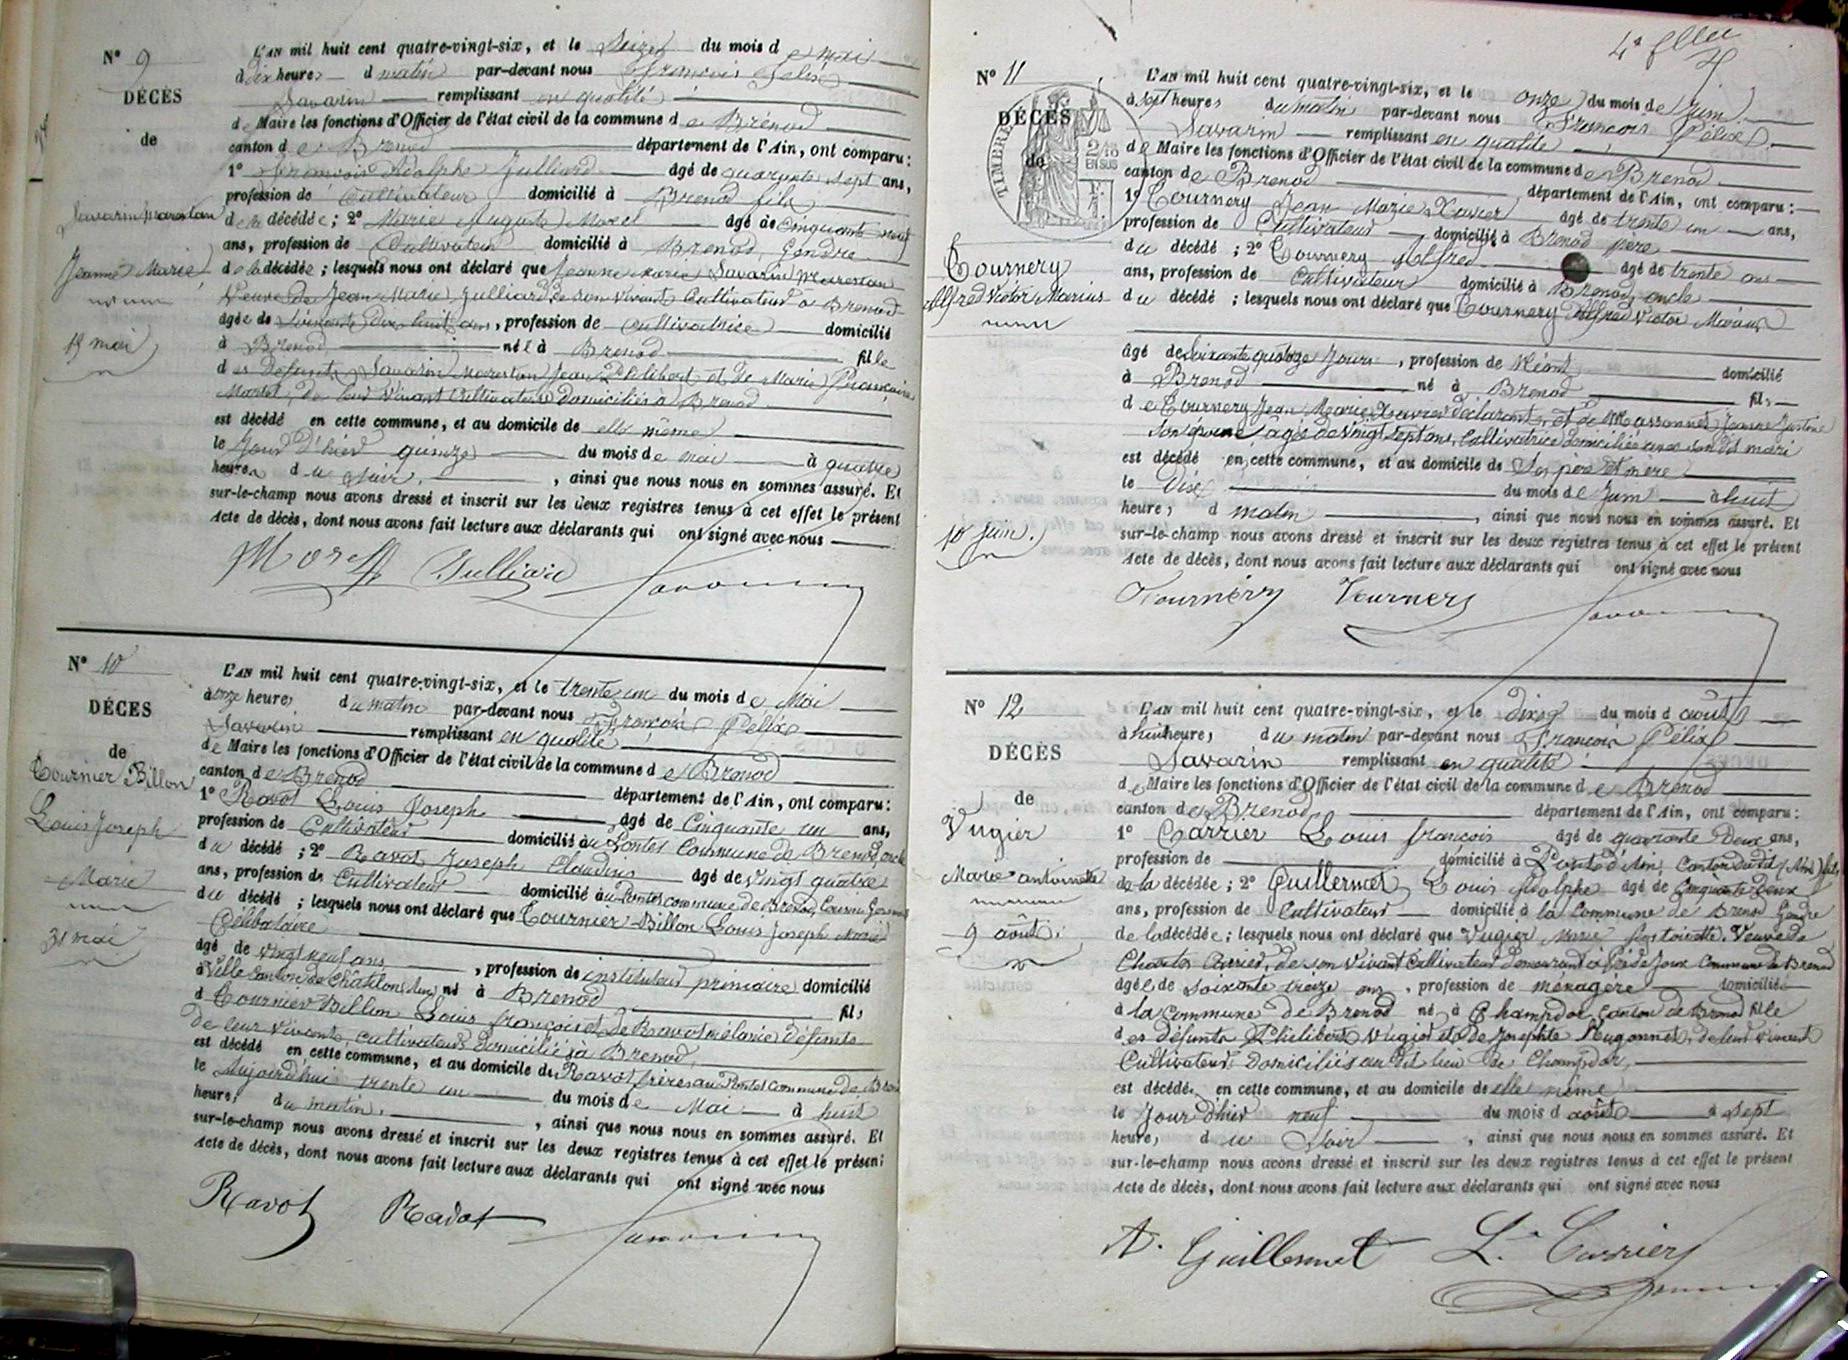 N° 9
DÉCÈS
de
Savarin Marestan
Jeanne Marie
15 mai
L'AN mil huit cent quatre-vingt-six, et le Seize du mois de mai
à dix heures du matin par-devant nous François Félix
Savarin remplissant en qualité
de Maire les fonctions d'Officier de l'état civil de la commune de Brénod
canton de Brenod département de l'Ain, ont comparu :
1° François Adolphe Julliard âgé de quarante sept ans,
profession de Cultivateur domicilié à Brenod fils
de la décédée ; 2° Marie Auguste Morel âgé de Cinquante neuf
ans, profession de Cultivateur domicilié à Brenod, Gendre
de la décédée ; lesquels nous ont déclaré que Jeanne Marie Savarin Marestan
Veuve de Jean Marie Julliard de son vivant Cultivateur à Brenod
âgée de soixante dix huit ans, profession de cultivatrice domicilié
à Brenod né à Brenod fille
des défunts Savarin Marestan Jean Philibert et de Marie Françoise
Martel, de leur vivant Cultivateurs domiciliés à Brenod
est décédé en cette commune, et au domicile de elle même
le Jour d'hier quinze du mois de mai à quatre
heures du soir, ainsi que nous nous en sommes assuré. Et
sur-le-champ nous avons dressé et inscrit sur les deux registres tenus à cet effet le présent
Acte de décès, dont nous avons fait lecture aux déclarants qui ont signé avec nous
Morel Julliard Savarin
N° 10
DÉCES
de
Tournier Billon
Louis Joseph
Marie
31 mai
L'AN mil huit cent quatre-vingt-six, et le trente un du mois de Mai
à onze heures du matin par-devant nous François Félix
Savarin remplissant en qualité
de Maire les fonctions d'Officier de l'état civil de la commune de Brenod
canton de Brenod département de l'Ain, ont comparu :
1° Ravot Louis Joseph âgé de Cinquante un ans,
profession de Cultivateur domicilié au Pontet Commune de Brenod, oncle
du décédé ; 2° Ravot Joseph Claudius âgé de vingt quatre
ans, profession de Cultivateur domicilié au Pontet commune de Brenod, Cousin Germain
du décédé ; lesquels nous ont déclaré que Tournier Billon Louis Joseph Marie
Célibataire
âgé de vingt neuf ans, profession de instituteur primaire domicilié
à Ville Canton de Châtillon né à Brenod fils
d Tournier Billon Louis françois et de Ravot mélanie défunts
de leur vivant, cultivateurs domiciliés à Brenod,
est décédé en cette commune, et au domicile de Ravot frères au Pontet Commune de Brenod
le Aujourd'hui trente un du mois de Mai à huit
heures du matin, ainsi que nous nous en sommes assuré. Et
sur-le-champ nous avons dressé et inscrit sur les deux registres tenus à cet effet le présent
Acte de décès, dont nous avons fait lecture aux déclarants qui ont signé avec nous
Ravot Ravot Savarin
N° 11
DÉCÈS
de
TIMBRE
2/10
EN SUS
Tournery
Alfred Victor Marius
10 Juin.
L'AN mil huit cent quatre-vingt-six, et le onze du mois de Juin
à sept heures du matin par-devant nous François Félix
Savarin remplissant en qualité
de Maire les fonctions d'Officier de l'état civil de la commune de Brenod
canton de Brenod département de l'Ain, ont comparu :
1° Tournery Jean Marie Xavier âgé de trente un ans,
profession de Cultivateur domicilié à Brenod père
du décédé ; 2° Tournery Alfred âgé de trente ans
ans, profession de Cultivateur domicilié à Brenod, oncle
du décédé ; lesquels nous ont déclaré que Tournery Alfred Victor Marius
âgé de soixante quatorze Jours, profession de Néant domicilié
à Brenod né à Brenod fils
de Tournery Jean Marie Xavier déclarant, et de Massonnet Jeanne Justine
son épouse âgée de vingt sept ans, Cultivatrice domiciliée avec son dit mari
est décédé en cette commune, et au domicile de Ses père et mère
le dix du mois de Juin à huit
heures d matin, ainsi que nous nous en sommes assuré. Et
sur-le-champ nous avons dressé et inscrit sur les deux registres tenus à cet effet le présent
Acte de décès, dont nous avons fait lecture aux déclarants qui ont signé avec nous
Tournéry Tournery Savarin
N° 12
DÉCÈS
de
Vugier
Marie antoinette
9 août
L'AN mil huit cent quatre-vingt-six, et le dix du mois d août
à huit heures du matin par-devant nous François Félix
Savarin remplissant en qualité
de Maire les fonctions d'Officier de l'état civil de la commune de Brenod
canton de Brenod département de l'Ain, ont comparu :
1° Carrier Louis françois âgé de quarante Deux ans,
profession de domicilié à Pont d'Ain, Canton du dit (Ain) fils
de la décédée ; 2° Guillermet Louis Adolphe âgé de Cinquante Deux
ans, profession de Cultivateur domicilié à la Commune de Brenod Gendre
de la décédée ; lesquels nous ont déclaré que Vugier Marie Antoinette, Veuve de
Charles Carrier, de son vivant Cultivateur demeurant à Commune de Brenod
âgée de soixante treize ans, profession de ménagère domicilié
à la Commune de Brenod né à Champdor, Canton de Brenod fille
des défunts Philibert Vugier et de Josephte Hugonnet, de leur vivant
Cultivateurs domiciliés au dit lieu de Champdor,
est décédé en cette commune, et au domicile de elle même
le Jour d'hier neuf du mois d août à sept
heures du Soir, ainsi que nous nous en sommes assuré. Et
sur-le-champ nous avons dressé et inscrit sur les deux registres tenus à cet effet le présent
Acte de décès, dont nous avons fait lecture aux déclarants qui ont signé avec nous
A. Guillermet L. Carrier